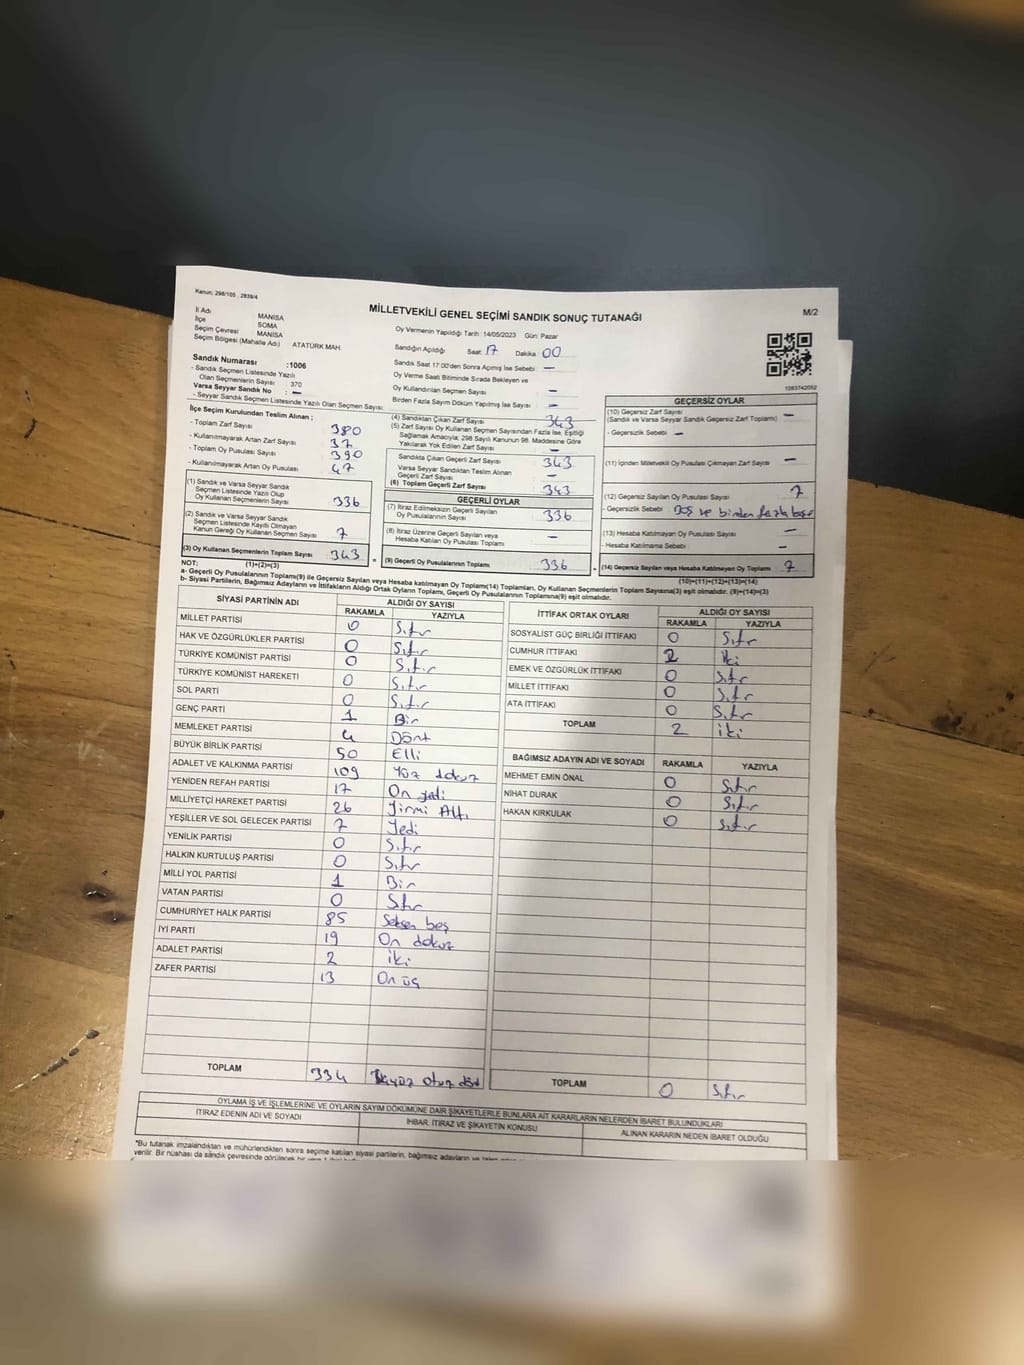 Kanun: 298/105 ; 2839/4
MİLLETVEKİLİ GENEL SEÇİMİ SANDIK SONUÇ TUTANAĞI
M/2
İl Adı MANİSA
İlçe SOMA
Seçim Çevresi MANİSA
Seçim Bölgesi (Mahalle Adı) : ATATÜRK MAH.
Sandık Numarası :1006
- Sandık Seçmen Listesinde Yazılı
Olan Seçmenlerin Sayısı : 370
Varsa Seyyar Sandık No : —
- Seyyar Sandık Seçmen Listesinde Yazılı Olan Seçmen Sayısı:
Oy Vermenin Yapıldığı Tarih :14/05/2023 Gün: Pazar
Sandığın Açıldığı Saat: 17 Dakika 00
Sandık Saat 17:00'den Sonra Açılmış İse Sebebi —
Oy Verme Saati Bitiminde Sırada Bekleyen ve
Oy Kullandırılan Seçmen Sayısı —
Birden Fazla Sayım Döküm Yapılmış İse Sayısı —
1383742052
İlçe Seçim Kurulundan Teslim Alınan :
- Toplam Zarf Sayısı 380
- Kullanılmayarak Artan Zarf Sayısı 37
- Toplam Oy Pusulası Sayısı 390
- Kullanılmayarak Artan Oy Pusulası 47
(1) Sandık ve Varsa Seyyar Sandık
Seçmen Listesinde Yazılı Olup
Oy Kullanan Seçmenlerin Sayısı 336
(2) Sandık ve Varsa Seyyar Sandık
Seçmen Listesinde Kayıtlı Olmayan
Kanun Gereği Oy Kullanan Seçmen Sayısı 7
(3) Oy Kullanan Seçmenlerin Toplam Sayısı 343
(1)+(2)=(3)
(4) Sandıktan Çıkan Zarf Sayısı 343
(5) Zarf Sayısı Oy Kullanan Seçmen Sayısından Fazla İse, Eşitliği
Sağlamak Amacıyla; 298 Sayılı Kanunun 98. Maddesine Göre
Yakılarak Yok Edilen Zarf Sayısı —
Sandıkta Çıkan Geçerli Zarf Sayısı 343
Varsa Seyyar Sandıktan Teslim Alınan
Geçerli Zarf Sayısı —
(6) Toplam Geçerli Zarf Sayısı 343
GEÇERLİ OYLAR
(7) İtiraz Edilmeksizin Geçerli Sayılan
Oy Pusulalarının Sayısı 336
(8) İtiraz Üzerine Geçerli Sayılan veya
Hesaba Katılan Oy Pusulası Toplamı —
= (9) Geçerli Oy Pusulalarının Toplamı 336
GEÇERSİZ OYLAR
(10) Geçersiz Zarf Sayısı
(Sandık ve Varsa Seyyar Sandık Geçersiz Zarf Toplamı) —
- Geçersizlik Sebebi —
(11) İçinden Milletvekili Oy Pusulası Çıkmayan Zarf Sayısı —
(12) Geçersiz Sayılan Oy Pusulası Sayısı 7
- Geçersizlik Sebebi Boş ve birden fazla
(13) Hesaba Katılmayan Oy Pusulası Sayısı —
- Hesaba Katılmama Sebebi —
+ (14) Geçersiz Sayılan veya Hesaba Katılmayan Oy Toplamı 7
(10)+(11)+(12)+(13)=(14)
NOT:
a- Geçerli Oy Pusulalarının Toplamı(9) ile Geçersiz Sayılan veya Hesaba katılmayan Oy Toplamı(14) Toplamları, Oy Kullanan Seçmenlerin Toplam Sayısına(3) eşit olmalıdır. (9)+(14)=(3)
b- Siyasi Partilerin, Bağımsız Adayların ve İttifakların Aldığı Ortak Oyların Toplamı, Geçerli Oy Pusulalarının Toplamına(9) eşit olmalıdır.
SİYASİ PARTİNİN ADI ALDIĞI OY SAYISI
RAKAMLA YAZIYLA
MİLLET PARTİSİ 0 Sıfır
HAK VE ÖZGÜRLÜKLER PARTİSİ 0 Sıfır
TÜRKİYE KOMÜNİST PARTİSİ 0 Sıfır
TÜRKİYE KOMÜNİST HAREKETİ 0 Sıfır
SOL PARTİ 0 Sıfır
GENÇ PARTİ 1 Bir
MEMLEKET PARTİSİ 4 Dört
BÜYÜK BİRLİK PARTİSİ 50 Elli
ADALET VE KALKINMA PARTİSİ 109 Yüz dokuz
YENİDEN REFAH PARTİSİ 17 On yedi
MİLLİYETÇİ HAREKET PARTİSİ 26 Yirmi Altı
YEŞİLLER VE SOL GELECEK PARTİSİ 7 Yedi
YENİLİK PARTİSİ 0 Sıfır
HALKIN KURTULUŞ PARTİSİ 0 Sıfır
MİLLİ YOL PARTİSİ 1 Bir
VATAN PARTİSİ 0 Sıfır
CUMHURİYET HALK PARTİSİ 85 Seksen beş
İYİ PARTİ 19 On dokuz
ADALET PARTİSİ 2 iki
ZAFER PARTİSİ 13 On üç
TOPLAM 334 otuz dört
İTTİFAK ORTAK OYLARI ALDIĞI OY SAYISI
RAKAMLA YAZIYLA
SOSYALİST GÜÇ BİRLİĞİ İTTİFAKI 0 Sıfır
CUMHUR İTTİFAKI 2 iki
EMEK VE ÖZGÜRLÜK İTTİFAKI 0 Sıfır
MİLLET İTTİFAKI 0 Sıfır
ATA İTTİFAKI 0 Sıfır
TOPLAM 2 iki
BAĞIMSIZ ADAYIN ADI VE SOYADI RAKAMLA YAZIYLA
MEHMET EMİN ÖNAL 0 Sıfır
NİHAT DURAK 0 Sıfır
HAKAN KIRKULAK 0 Sıfır
TOPLAM 0 Sıfır
OYLAMA İŞ VE İŞLEMLERİNE VE OYLARIN SAYIM DÖKÜMÜNE DAİR ŞİKAYETLERLE BUNLARA AİT KARARLARIN NELERDEN İBARET BULUNDUKLARI
İTİRAZ EDENİN ADI VE SOYADI İHBAR, İTİRAZ VE ŞİKAYETİN KONUSU ALINAN KARARIN NEDEN İBARET OLDUĞU
*Bu tutanak imzalandıktan ve mühürlendikten sonra seçime katılan siyasi partilerin, bağımsız adayların ve
verilir. Bir nüshası da sandık çevresinde